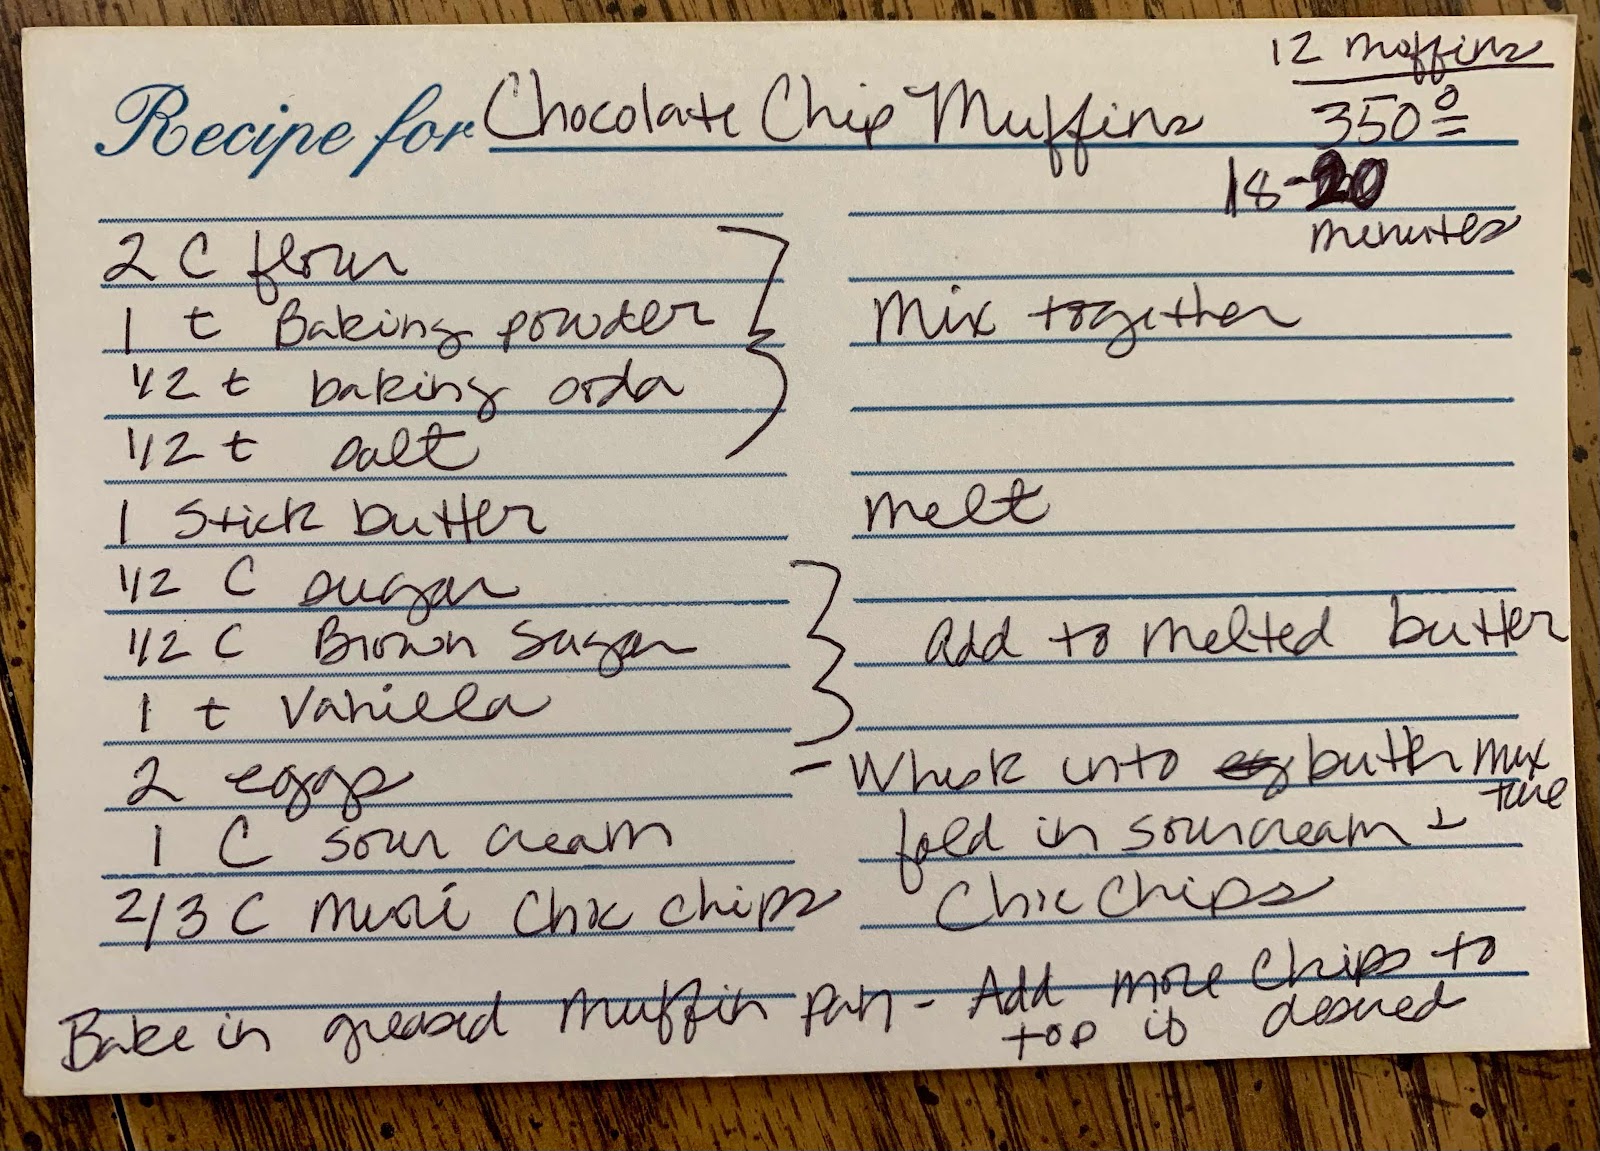 12 muffins
Recipe for Chocolate Chip Muffins
350°
18-20
minutes
2 C flour
1 t Baking powder
Mix together
1/2 t baking soda
1/2 t salt
1 Stick butter
melt
1/2 C sugar
1/2 C Brown Sugar
add to melted butter
1 t Vanilla
2 eggs
- Whisk into butter mix
ture
1 C sour cream
fold in sourcream +
2/3 C mini Choc chips
Choc Chips
Bake in greased muffin pan - Add more chips to
top if desired